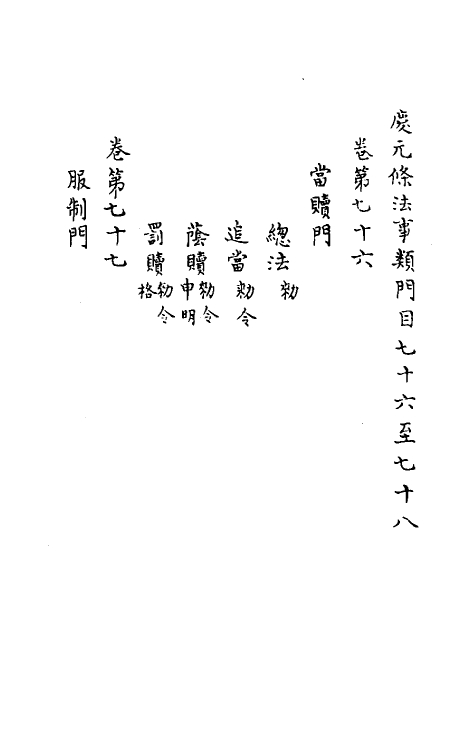 慶元條法事類門目七十六至七十八
卷第七十六
當贖門
總法勑
追當勑令
蔭贖勑令申明
罰贖勑令格
卷第七十七
服制門